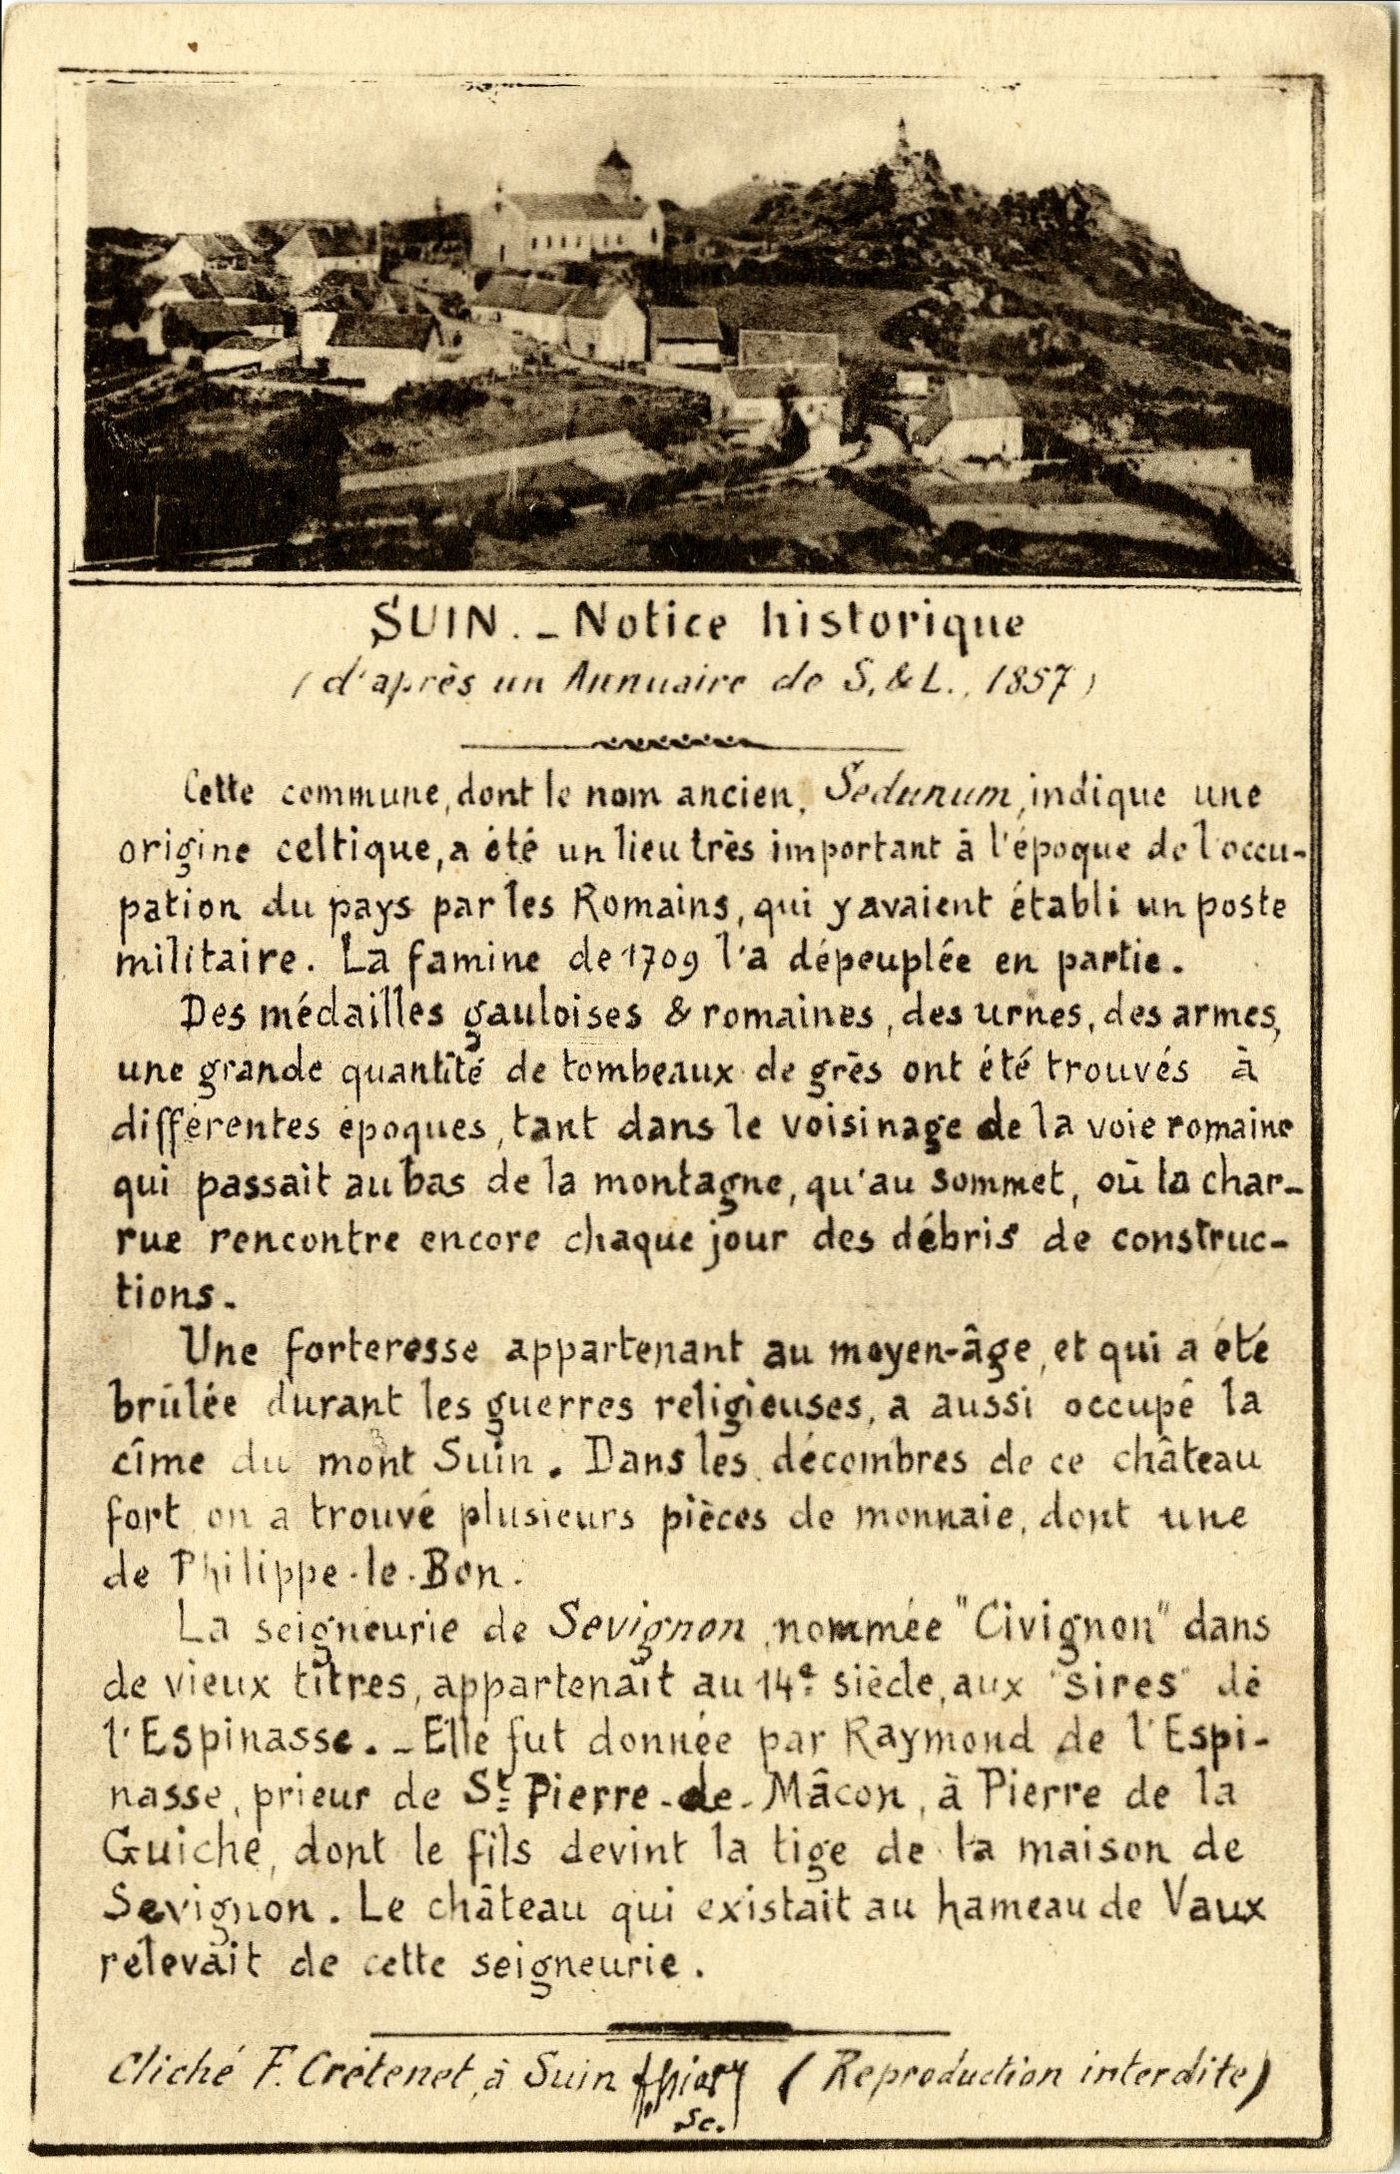 SUIN. - Notice historique
(d'après un Annuaire de S. & L., 1857)
Cette commune, dont le nom ancien, Sedunum, indique une
origine celtique, a été un lieu très important à l'époque de l'occu-
pation du pays par les Romains, qui y avaient établi un poste
militaire. La famine de 1709 l'a dépeuplée en partie.
Des médailles gauloises & romaines, des urnes, des armes,
une grande quantité de tombeaux de grès ont été trouvés à
différentes époques, tant dans le voisinage de la voie romaine
qui passait au bas de la montagne, qu'au sommet, où la char-
rue rencontre encore chaque jour des débris de construc-
tions.
Une forteresse appartenant au moyen-âge, et qui a été
brûlée durant les guerres religieuses, a aussi occupé la
cîme du mont Suin. Dans les décombres de ce château
fort on a trouvé plusieurs pièces de monnaie, dont une
de Philippe-le-Bon.
La seigneurie de Sevignon, nommée "Civignon" dans
de vieux titres, appartenait au 14e siècle, aux "sires" de
l'Espinasse. - Elle fut donnée par Raymond de l'Espi-
nasse, prieur de St Pierre-de-Mâcon, à Pierre de la
Guiche, dont le fils devint la tige de la maison de
Sevignon. Le château qui existait au hameau de Vaux
relevait de cette seigneurie.
Cliché F. Crétenet, à Suin (Reproduction interdite)
Sc.